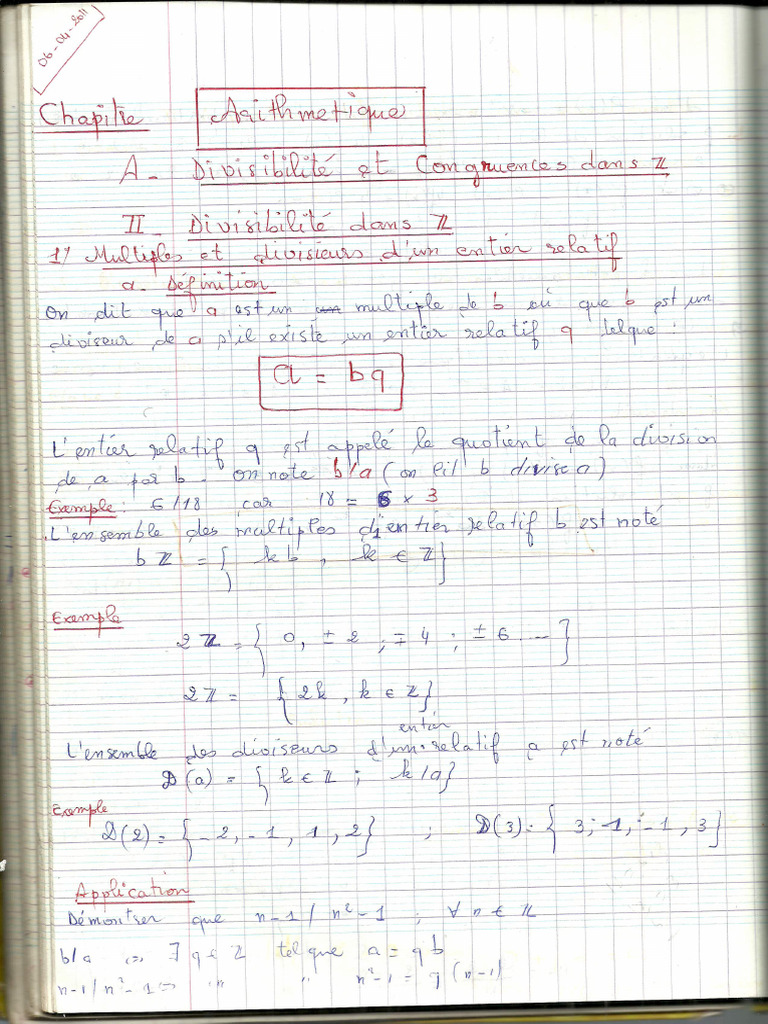 06-04-2011
Chapitre Arithmetique
A- Divisibilité et Congruences dans ℤ
II- Divisibilité dans ℤ
1) Multiples et divisieurs d'un entier relatif
a- Définition
On dit que a est un multiple de b où que b est un
diviseur de a s'il existe un entier relatif q telque :
a = bq
L'entier relatif q est appelé le quotient de la division
de a par b. on note b/a (on lit b divise a)
Exemple: 6/18 car 18 = 6 × 3
L'ensemble des multiples d'entier relatif b est noté
bℤ = { kb, k ∈ ℤ}
Exemple
2ℤ = { 0, ± 2 ; ∓ 4 ; ± 6 ... }
2ℤ = {2k, k ∈ ℤ}
L'ensemble des diviseurs d'un entier relatif a est noté
D(a) = { k ∈ ℤ ; k/a}
Exemple
D(2) = {-2, -1, 1, 2} ; D(3) = { 3; -1, -1, 3}
Application
Démontser que n-1 / n²-1 ; ∀ n ∈ ℤ
b/a ⇔ ∃ q ∈ ℤ tel que a = q b
n-1/n²-1 ⇔ " " n²-1 = q (n-1)